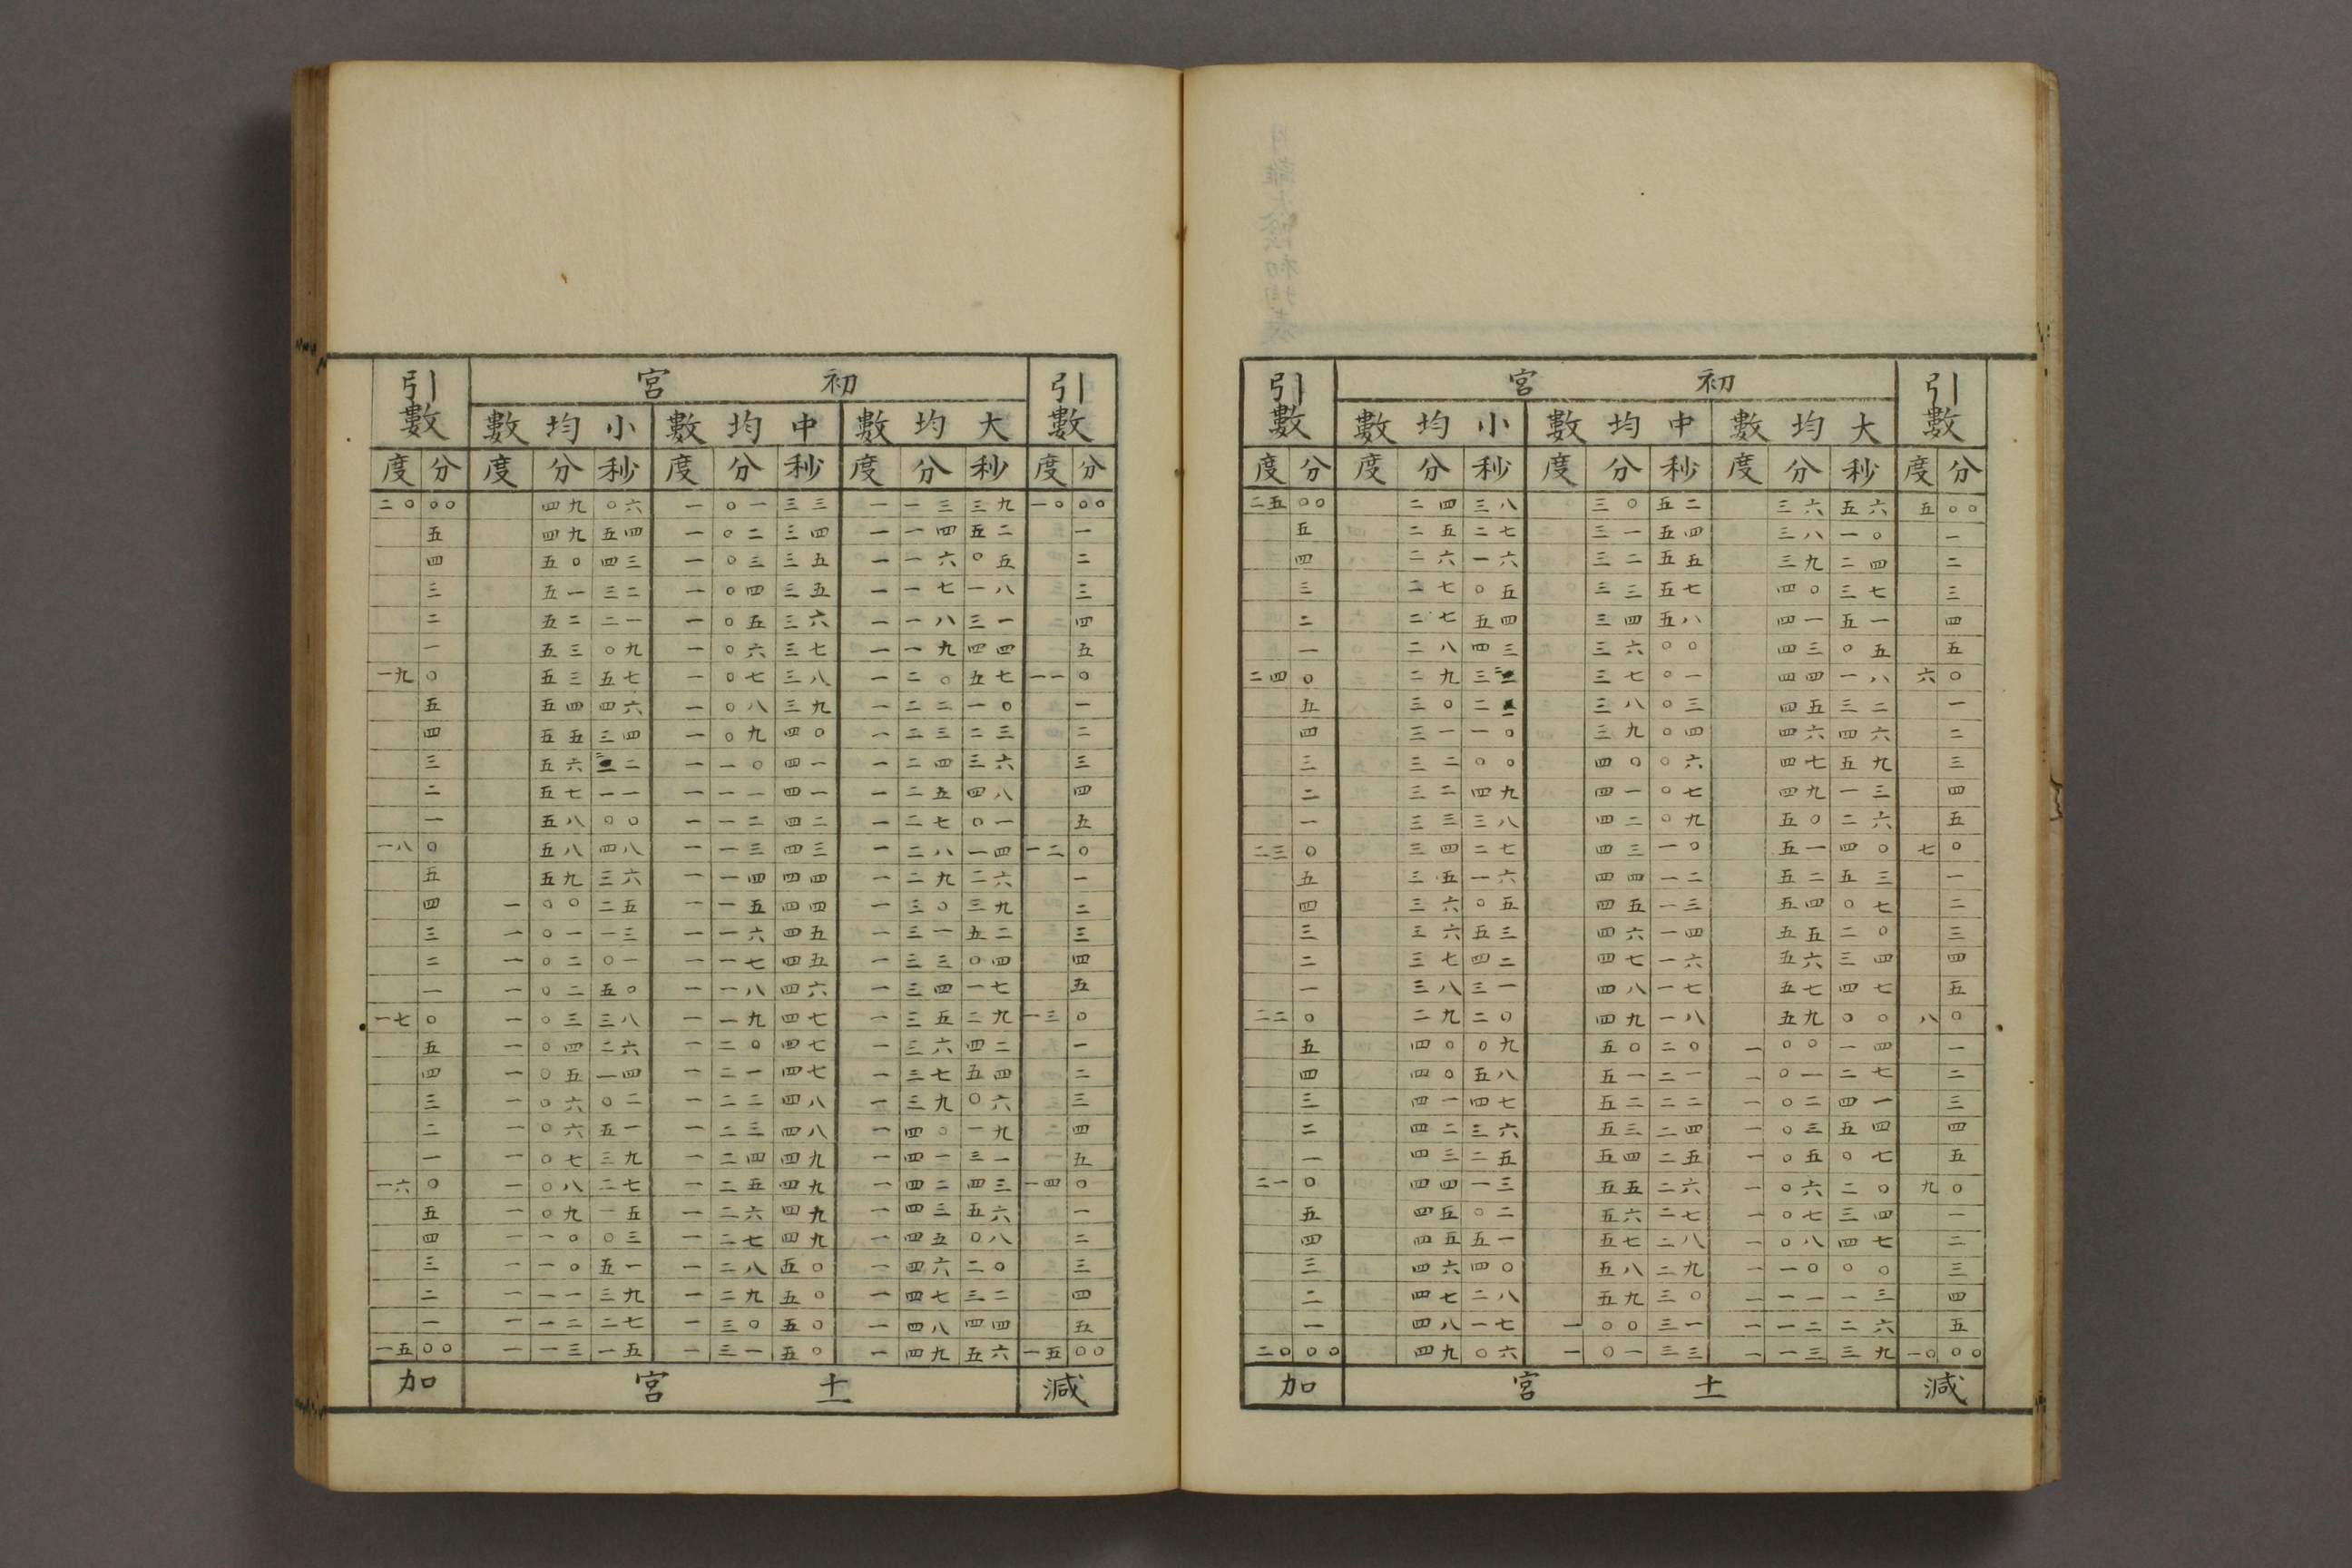 引數 初宮 引數
大均數 中均數 小均數
度 分 度 分 秒 度 分 秒 度 分 秒 度 分
二五 〇〇 二四 三八 三〇 五二 三六 五六 五 〇〇
五 二五 二七 三一 五四 三八 一〇 一
四 二六 一六 三二 五五 三九 二四 二
三 二七 〇五 三三 五七 四〇 三七 三
二 二七 五四 三四 五八 四一 五一 四
一 二八 四三 三六 〇〇 四三 〇五 五
二四 〇 二九 三二 三七 〇一 四四 一八 六 〇
五 三〇 二一 三八 〇三 四五 三二 一
四 三一 一〇 三九 〇四 四六 四六 二
三 三二 〇〇 四〇 〇六 四七 五九 三
二 三二 四九 四一 〇七 四九 一三 四
一 三三 三八 四二 〇九 五〇 二六 五
二三 〇 三四 二七 四三 一〇 五一 四〇 七 〇
五 三五 一六 四四 一二 五二 五三 一
四 三六 〇五 四五 一三 五四 〇七 二
三 三六 五三 四六 一四 五五 二〇 三
二 三七 四二 四七 一六 五六 三四 四
一 三八 三一 四八 一七 五七 四七 五
二二 〇 二九 二〇 四九 一八 五九 〇〇 八 〇
五 四〇 〇九 五〇 二〇 一 〇〇 一四 一
四 四〇 五八 五一 二一 一 〇一 二七 二
三 四一 四七 五二 二二 一 〇二 四一 三
二 四二 三六 五三 二四 一 〇三 五四 四
一 四三 二五 五四 二五 一 〇五 〇七 五
二一 〇 四四 一三 五五 二六 一 〇六 二〇 九 〇
五 四五 〇二 五六 二七 一 〇七 三四 一
四 四五 五一 五七 二八 一 〇八 四七 二
三 四六 四〇 五八 二九 一 一〇 〇〇 三
二 四七 二八 五九 三〇 一 一一 一三 四
一 四八 一七 一 〇〇 三一 一 一二 二六 五
二〇 〇〇 四九 〇六 一 〇一 三三 一 一三 三九 一〇 〇〇
加 十一宮 減
引數 初宮 引數
大均數 中均數 小均數
度 分 度 分 秒 度 分 秒 度 分 秒 度 分
二〇 〇〇 四九 〇六 一 〇一 三三 一 一三 三九 一〇 〇〇
五 四九 五四 一 〇二 三四 一 一四 五二 一
四 五〇 四三 一 〇三 三五 一 一六 〇五 二
三 五一 三二 一 〇四 三五 一 一七 一八 三
二 五二 二一 一 〇五 三六 一 一八 三一 四
一 五三 〇九 一 〇六 三七 一 一九 四四 五
一九 〇 五三 五七 一 〇七 三八 一 二〇 五七 一一 〇
五 五四 四六 一 〇八 三九 一 二二 一〇 一
四 五五 三四 一 〇九 四〇 一 二三 二三 二
三 五六 二二 一 一〇 四一 一 二四 三六 三
二 五七 一一 一 一一 四一 一 二五 四八 四
一 五八 〇〇 一 一二 四二 一 二七 〇一 五
一八 〇 五八 四八 一 一三 四三 一 二八 一四 一二 〇
五 五九 三六 一 一四 四四 一 二九 二六 一
四 一 〇〇 二五 一 一五 四四 一 三〇 三九 二
三 一 〇一 一三 一 一六 四五 一 三一 五二 三
二 一 〇二 〇一 一 一七 四五 一 三三 〇四 四
一 一 〇二 五〇 一 一八 四六 一 三四 一七 五
一七 〇 一 〇三 三八 一 一九 四七 一 三五 二九 一三 〇
五 一 〇四 二六 一 二〇 四七 一 三六 四二 一
四 一 〇五 一四 一 二一 四七 一 三七 五四 二
三 一 〇六 〇二 一 二二 四八 一 三九 〇六 三
二 一 〇六 五一 一 二三 四八 一 四〇 一九 四
一 一 〇七 三九 一 二四 四九 一 四一 三一 五
一六 〇 一 〇八 二七 一 二五 四九 一 四二 四三 一四 〇
五 一 〇九 一五 一 二六 四九 一 四三 五六 一
四 一 一〇 〇三 一 二七 四九 一 四五 〇八 二
三 一 一〇 五一 一 二八 五〇 一 四六 二〇 三
二 一 一一 三九 一 二九 五〇 一 四七 三二 四
一 一 一二 二七 一 三〇 五〇 一 四八 四四 五
一五 〇〇 一 一三 一五 一 三一 五〇 一 四九 五六 一五 〇〇
加 十一宮 減